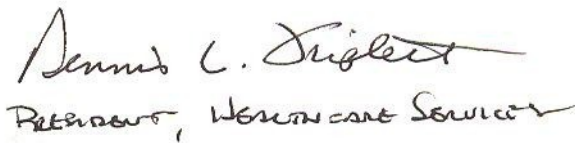 Dennis L. Triplett
President, Healthcare Services